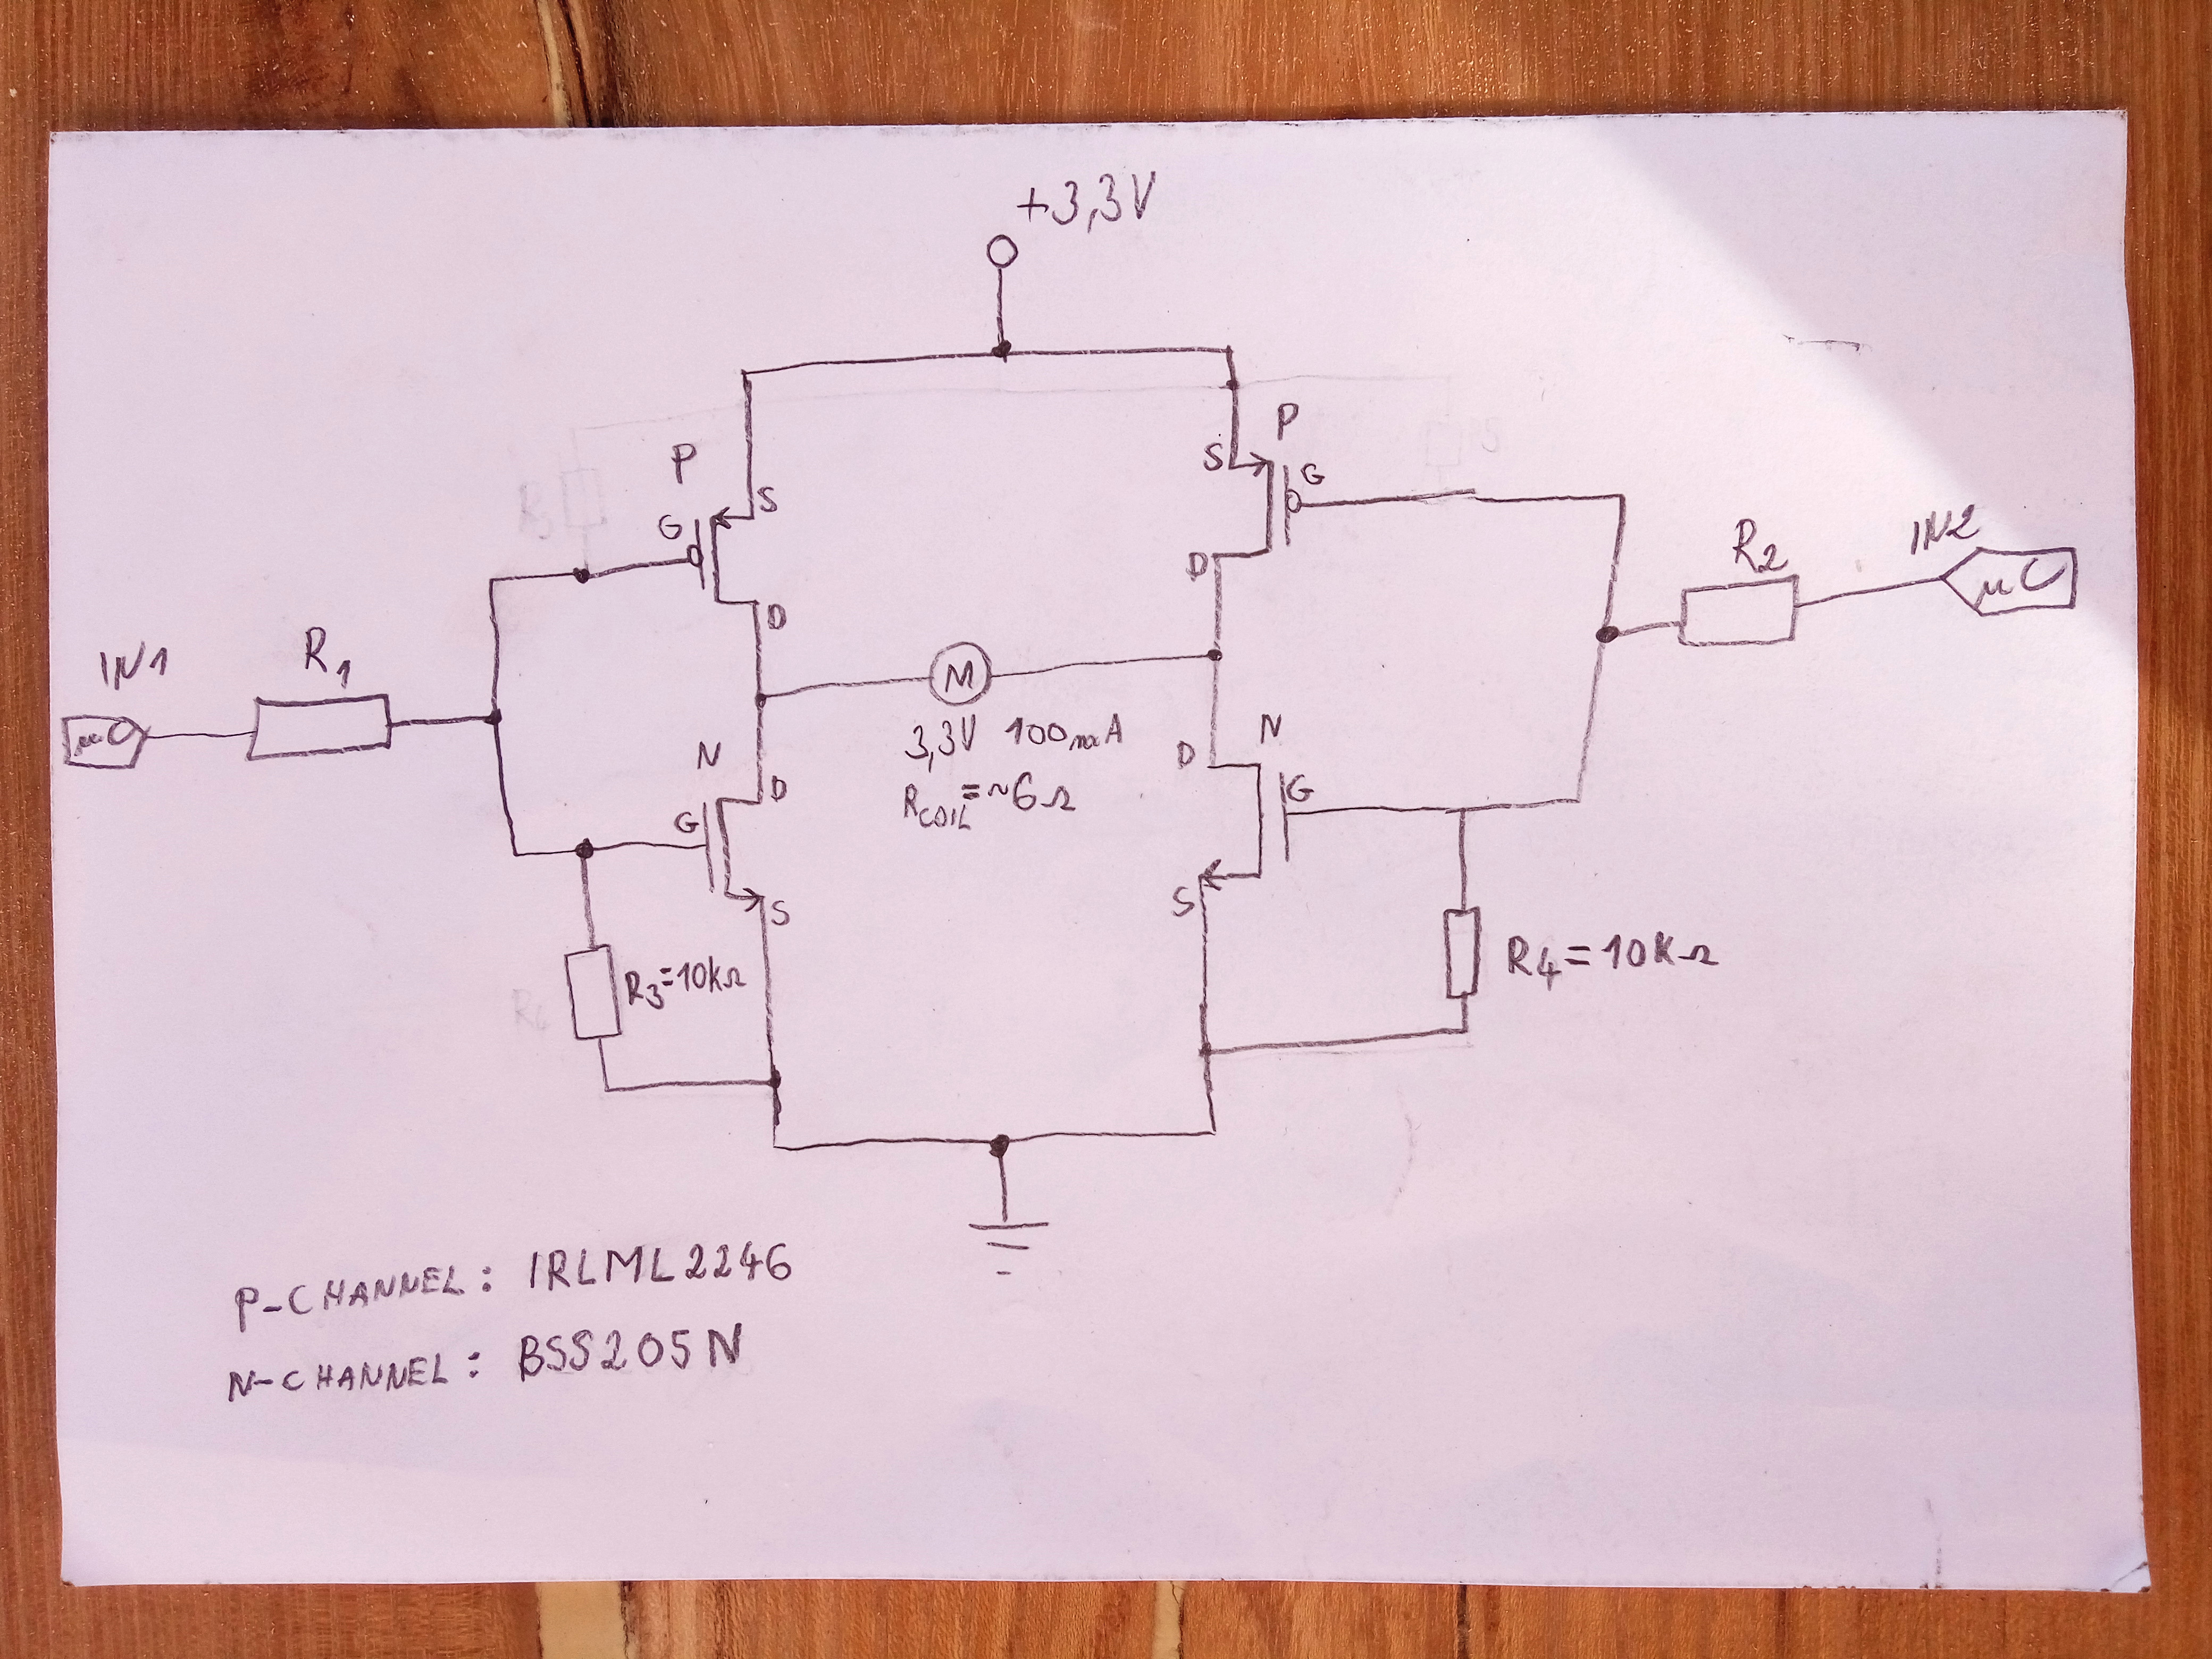 +3,3V
P
S
G
D
P
S
G
D
IN1
R1
μC
IN2
R2
μC
M
3,3V 100mA
RCOIL=~6Ω
N
D
G
S
N
D
G
S
R3=10kΩ
R4=10kΩ
P-CHANNEL: IRLML2246
N-CHANNEL: BSS205N